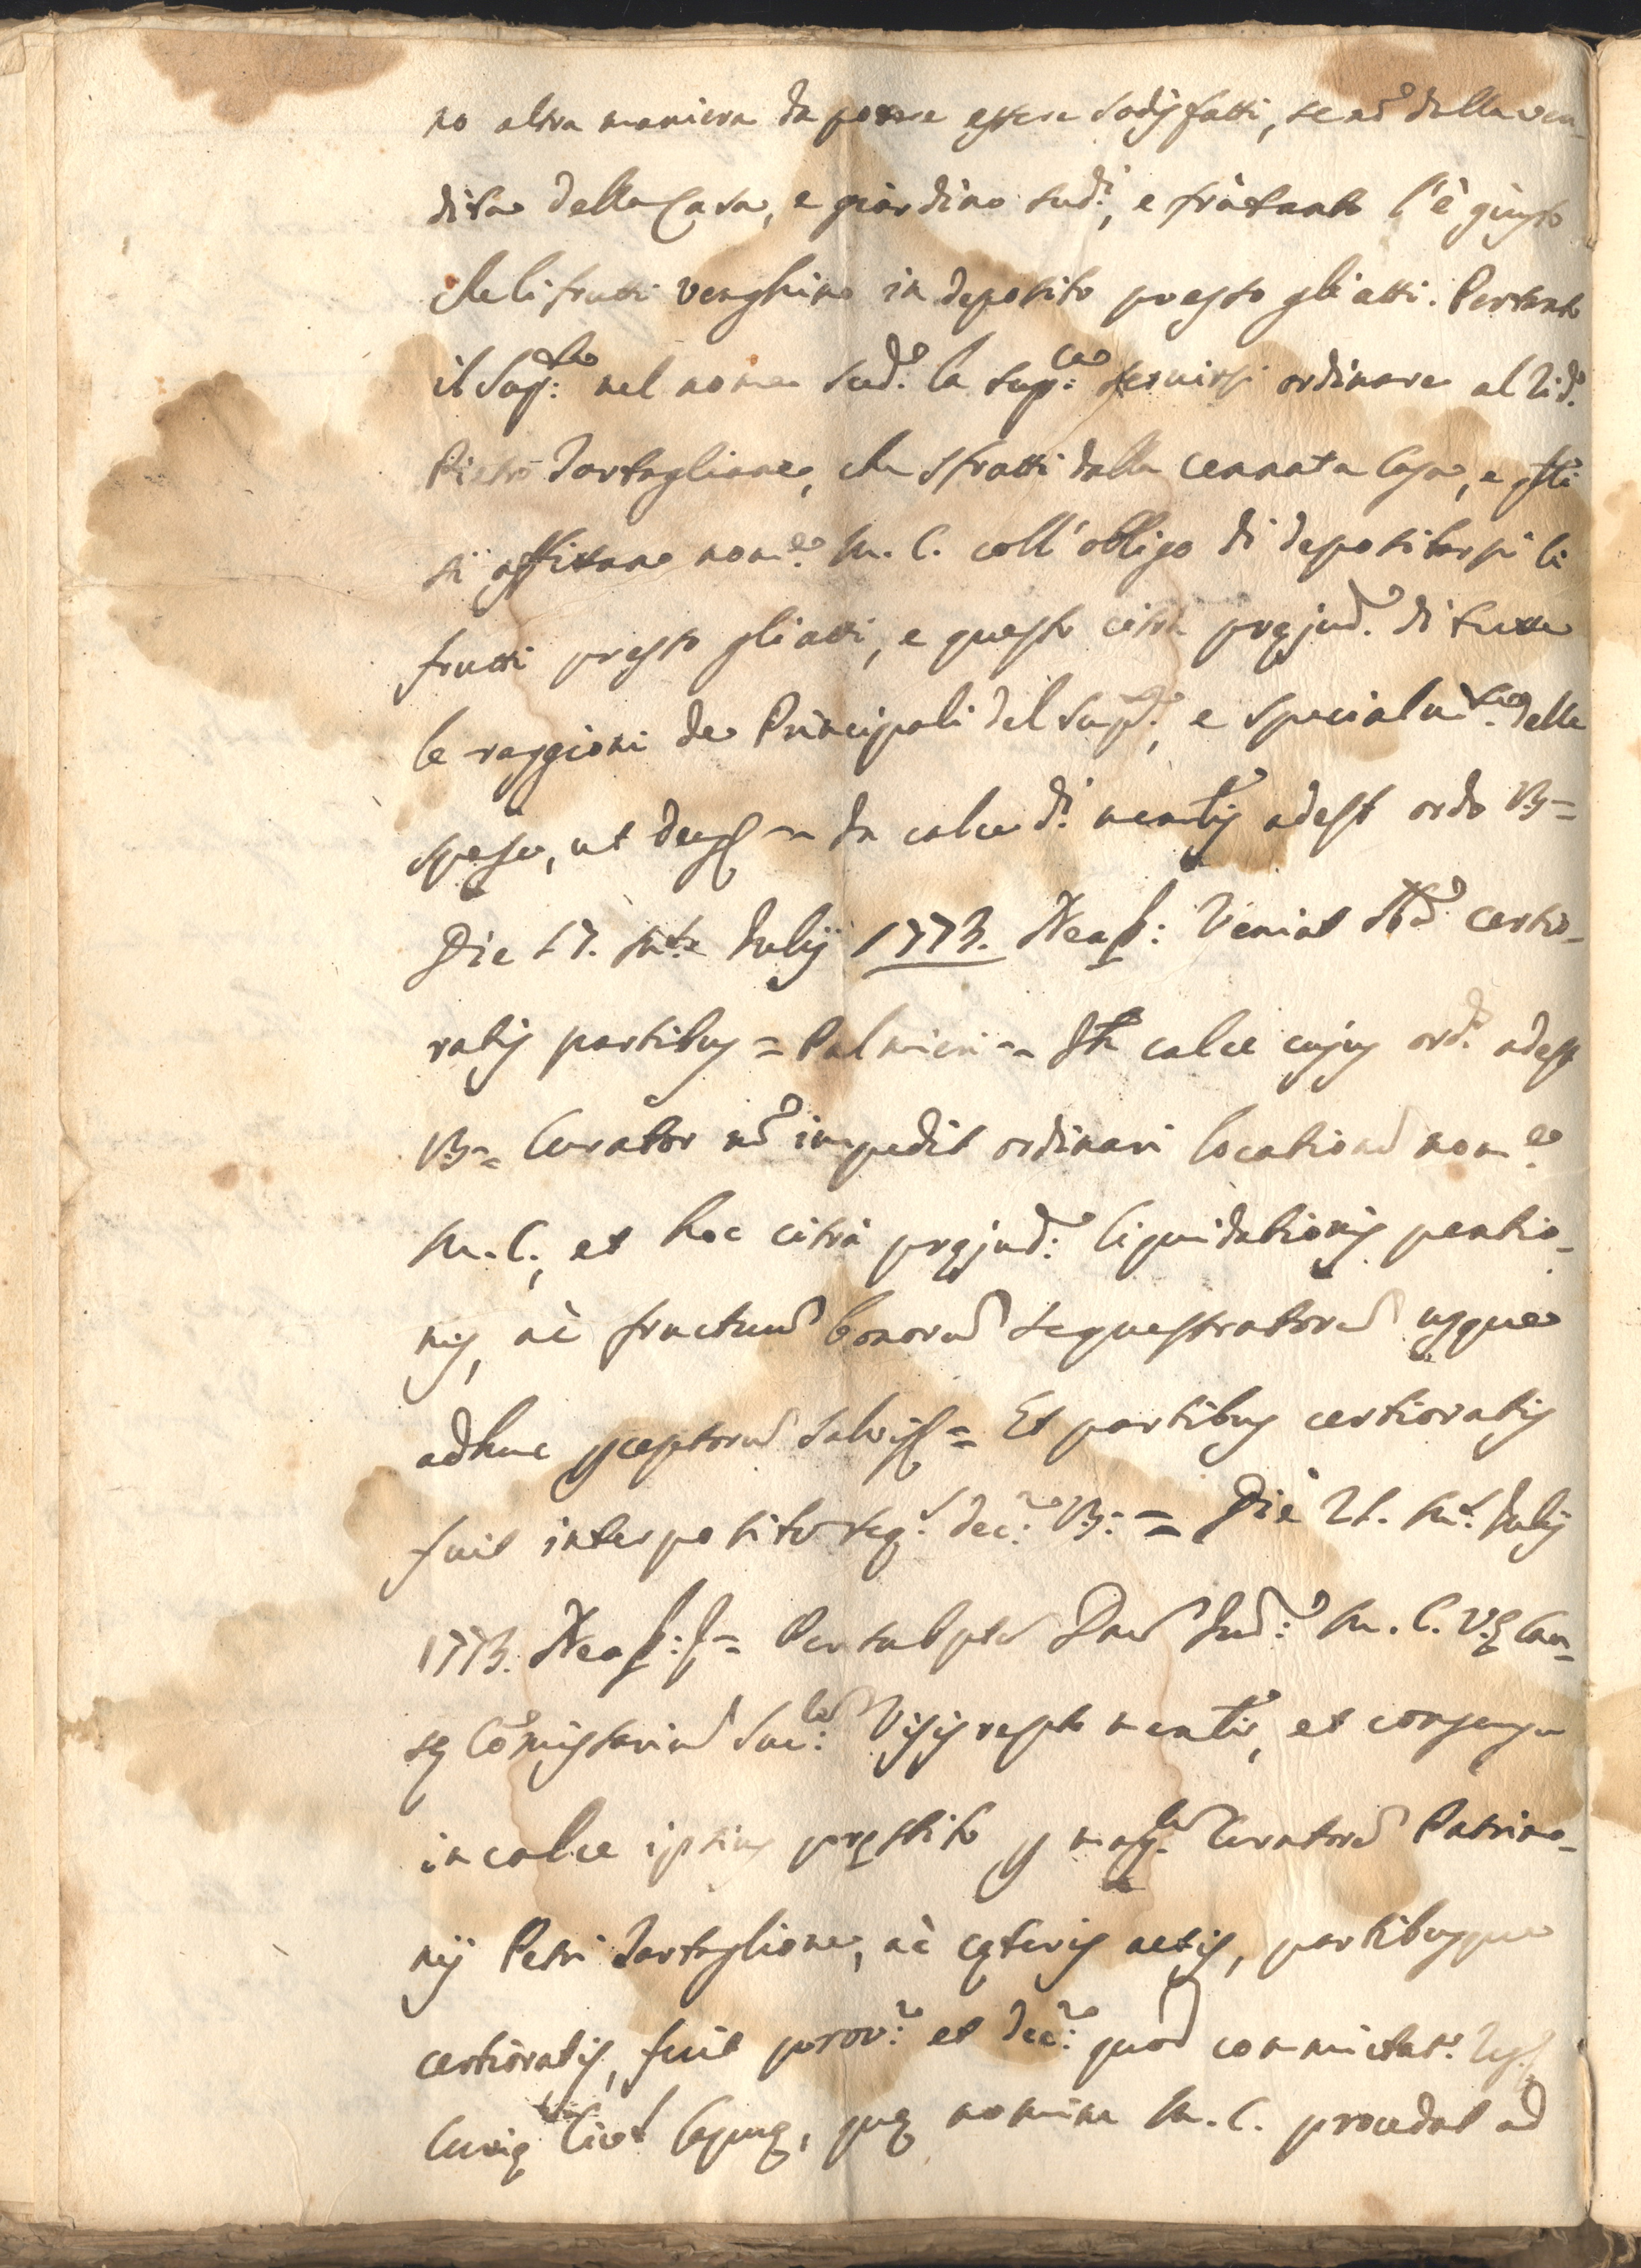 no altra maniera da potere essere sodisfatti, se nõ dalla ven-
dita della Casa, e giardino sud.i, e frà tanto l'è giusto
che li frutti venghino in deposito presso gli atti. Pertanto
il Sup.te nel nome sud.o la sup.ca servirsi ordinare al d.o
Pietro Tartaglione, che sfratti dalla cennata Casa, e
si affittano nom.e M. C. coll'obligo di depositarsi li
frutti presso gli atti, e questo citra pręjud.o di tutte
le raggioni de Principali del Sup.te, e specialm.te delle
spese, ut deus = In calce d.i adest ordo =
Die 17. m.s Julij 1773. Neap: Veniat certio-
ratis partibus = Palmieri = In calce cujus ord.s adest
= Curator nõ impedit ordinari locationẽ nom.e
M. C., et hoc citrà pręjud.o liquidationis pentio-
nis, ac fructuũ bonorũ sequestratorũ usque
adhuc ꝑceptorũ salvis = Et partibus certioratis
fuit interpositũ seq.s dec.m = Die 21. m.s Julij
1773. Neap: = Per Dnũ Jud.m M. C. V.ę Cau-
sę Cõmissariũ Viso rết.o et consensu
in calce ipsius pręstito ꝑ mag.cũ Curatorẽ Patrimo-
nij Petri Tartaglione, ac cęteris actis, partibusque
certioratis, fuit prov.m et dec.m quod committat.r
Curię Civ.tis Capuę, quę nomine M. C. procedat ad